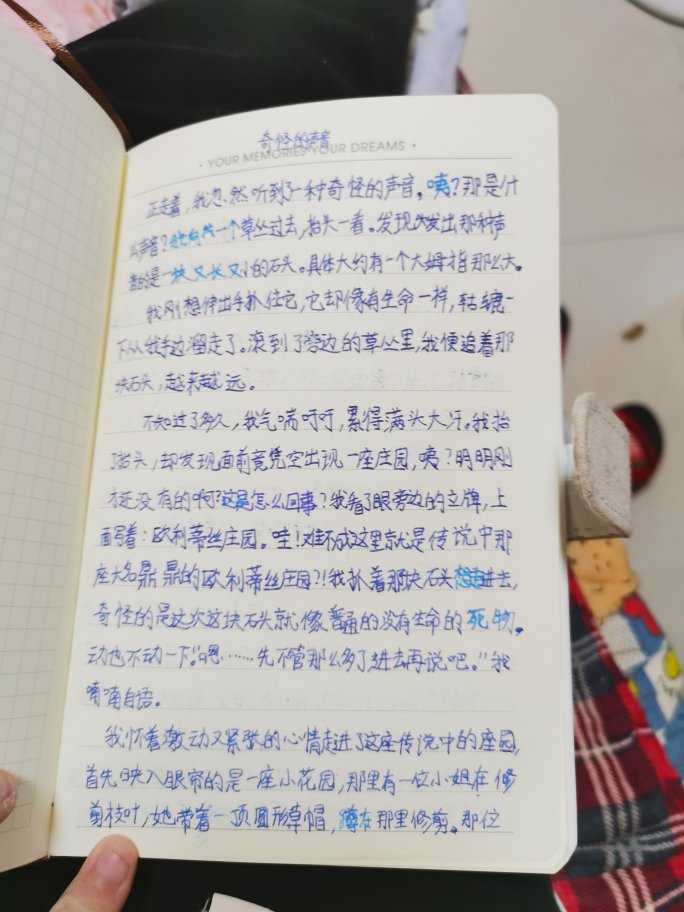 奇怪的声音
· YOUR MEMORIES YOUR DREAMS ·
正走着，我忽然听到了一种奇怪的声音，咦？那是什
么声音？我向一个草丛过去，抬头一看。发现发出那种声
音的是一块又长又小的石头。具体大约有一个大姆指那么大。
我刚想伸出手抓住它，它却像有生命一样，轱辘一
下从我手边溜走了。滚到了旁边的草丛里，我便追着那
块石头，越来越远。
不知过了多久，我气喘吁吁，累得满头大汗。我抬
了抬头，却发现面前竟凭空出现一座庄园，咦？明明刚
才还没有的啊？这是怎么回事？我看了眼旁边的立牌，上
面写着：欧利蒂丝庄园。哇！难不成这里就是传说中那
座大名鼎鼎的欧利蒂丝庄园？！我扒着那块石头想进去，
奇怪的是这次这块石头就像普通的没有生命的死物。
动也不动一下。“嗯……先不管那么多了进去再说吧。”我
喃喃自语。
我怀着激动又紧张的心情走进了这座传说中的座园，
首先映入眼帘的是一座小花园，那里有一位小姐在修
剪枝叶，她带着一顶圆形草帽，蹲在那里修剪。那位